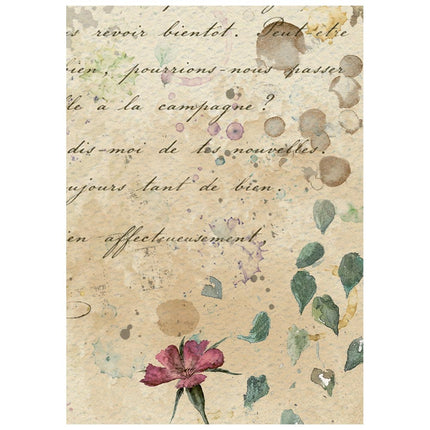 s revoir bientôt. Peut-être
bien, pourrions-nous passer
à la campagne?
dis-moi de tes nouvelles.
ujours tant de bien.
en affectueusement